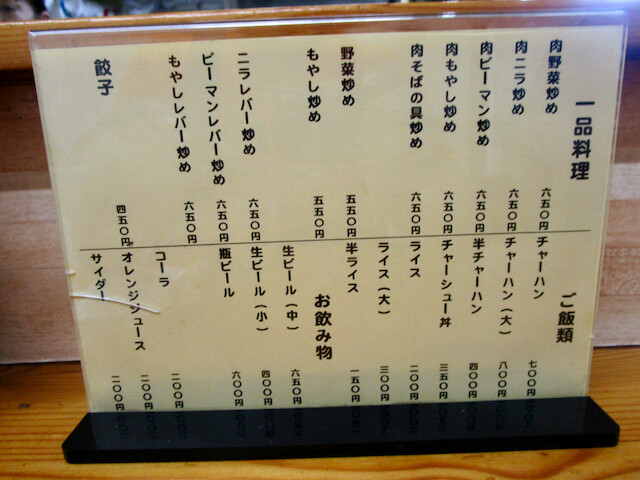 一品料理
肉野菜炒め 六五〇円
肉ニラ炒め 六五〇円
肉ピーマン炒め 六五〇円
肉もやし炒め 六五〇円
肉そばの具炒め 六五〇円
野菜炒め 五五〇円
もやし炒め 五五〇円
ニラレバー炒め 六五〇円
ピーマンレバー炒め 六五〇円
もやしレバー炒め 六五〇円
餃子 四五〇円
ご飯類
チャーハン 七〇〇円
チャーハン（大） 八〇〇円
半チャーハン 四〇〇円
チャーシュー丼 三五〇円
ライス 二〇〇円
ライス（大） 三〇〇円
半ライス 一五〇円
お飲み物
生ビール（中） 六五〇円
生ビール（小） 四〇〇円
瓶ビール 六〇〇円
コーラ 二〇〇円
オレンジジュース 二〇〇円
サイダー 二〇〇円